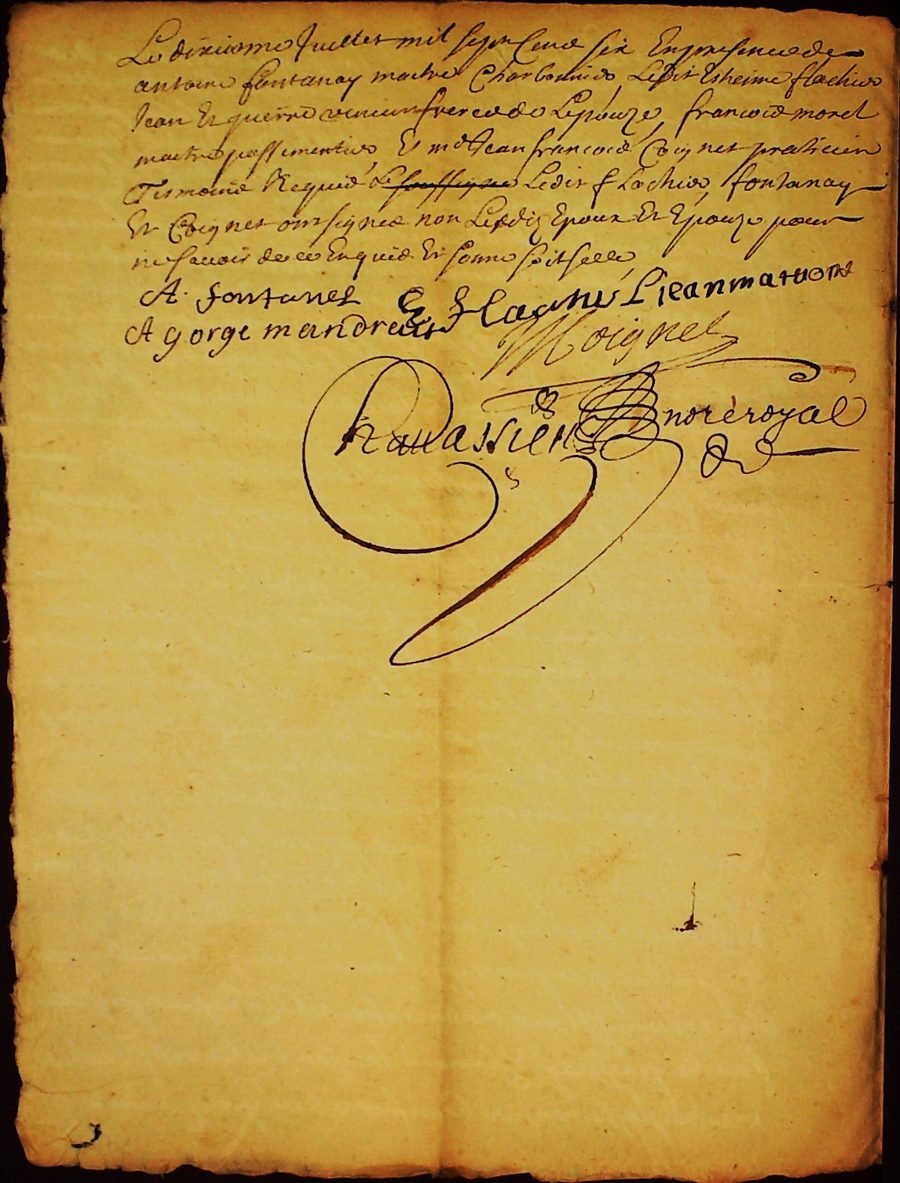 Le dixieme Juillet mil sept Cent six En presence de
antoine fontanay maitre Charbonnier Ledit Estienne flachier
Jean Et pierre frere de Lepouze, francois morel
maitre passementier Et me Jean francois Coignet praticien
Tesmoins Requis Le soussigne Ledit flachier, fontanay
Et Coignet ont signes non Lesdiz Epoux Et Epouze pour
ne savoir de ce Enquis Et somme soit sellé
A. fontanel E flachié Ljeanmathon
A gorge mandr
Coignet
Chavassieu nore royal